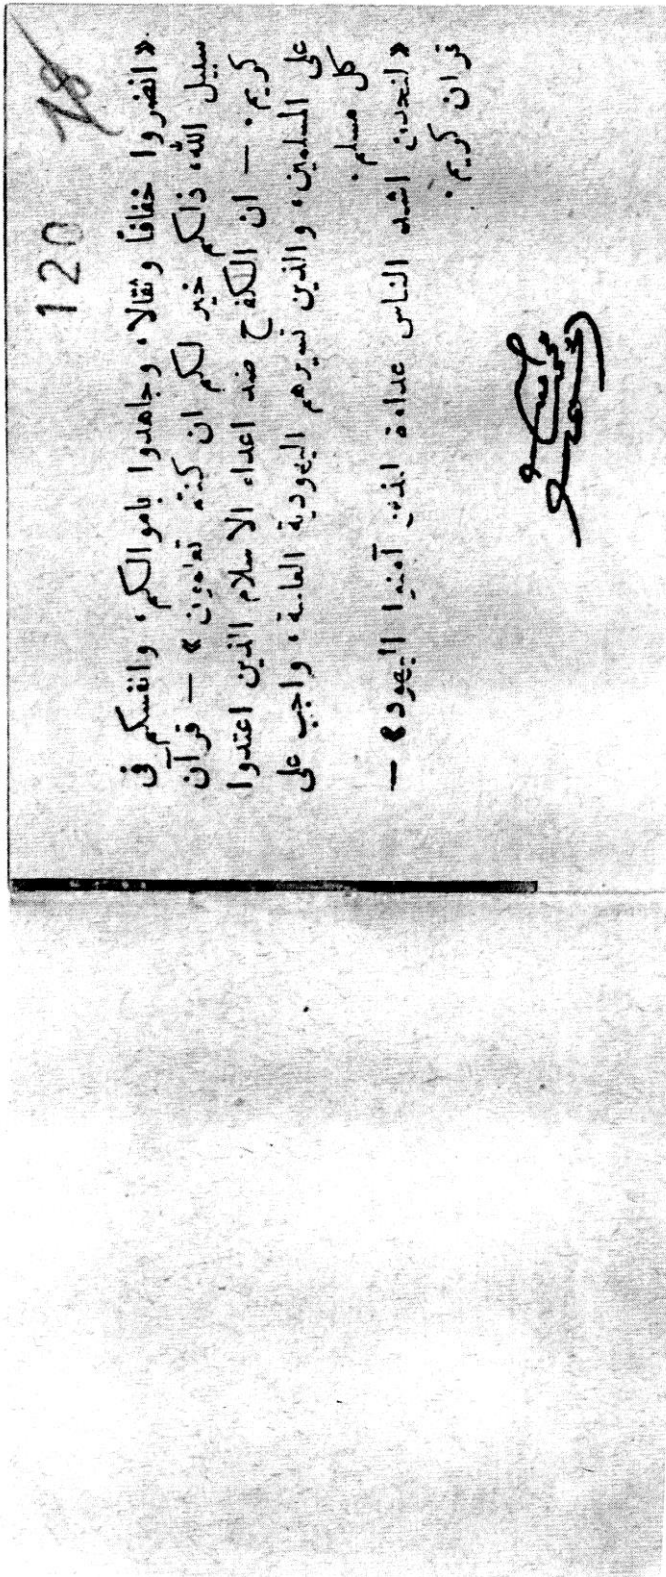 120
78
«انفروا خفافًا وثقالا، وجاهدوا باموالكم، وانفسكم فى
سبيل الله، ذالكم خير لكم ان كنتم تعلمون» — قرآن
كريم. — ان الكفح ضد اعداء الاسلام الذين اعتدوا
على المسلمين، والذين تسيرهم اليهودية العالمية، واجب على
كل مسلم.
«لتجدن اشد الناس عداوة للذين آمنوا اليهود» —
قرآن كريم.